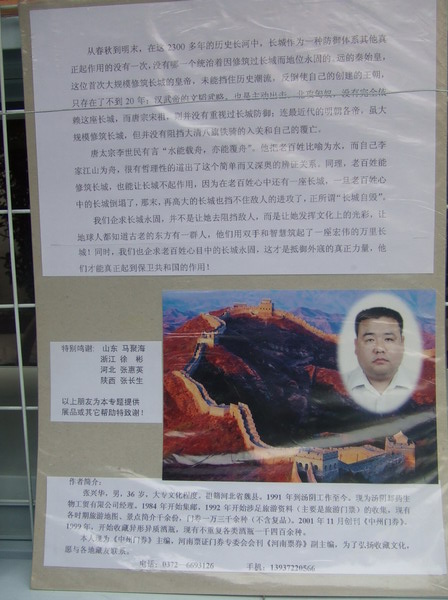 从春秋到明末，在近2300多年的历史长河中，长城作为一种防御体系其他真
正起作用的没有一次，没有哪一个统治者因修筑过长城而地位永固的。远的秦始皇，
这位首次大规模修筑长城的皇帝，未能挡住历史潮流，反倒使自己的创建的王朝，
只存在了不到20年；汉武帝的文韬武略，也是主动出击，北克匈奴，没有完全依
赖这座长城，而唐宗宋祖，则并没有重视过长城防御；连最近代的明朝各帝，虽大
规模修筑长城，但并没有阻挡大清八旗铁骑的入关和自己的覆亡。
唐太宗李世民有言“水能载舟，亦能覆舟”。他把老百姓比喻为水，而自己李
家江山为舟，很有哲理性的道出了这个简单而又深奥的辨证关系。同理，老百姓能
修筑长城，也能让长城不起作用，因为在老百姓心中还有一座长城，一旦老百姓心
中的长城倒塌了，那末，再高大的长城也挡不住敌人的进攻了，正所谓“长城自毁”。
我们企求长城永固，并不是让她去阻挡敌人，而是让她发挥文化上的光彩，让
地球人都知道古老的东方有一群人，他们用双手和智慧筑起了一座宏伟的万里长
城！同时，我们也企求老百姓心目中的长城永固，这才是抵御外底的真正力量，他
们才能真正起到保卫共和国的作用！
特别鸣谢：山东 马聚海
浙江 徐 彬
河北 张惠英
陕西 张长生
以上朋友为本专题提供
展品或其它帮助特致谢！
作者简介：
张兴华，男，36岁，大专文化程度。祖籍河北省魏县，1991年到汤阴工作至今。现为汤阴
物工贸有限公司经理。1984年开始集邮，1992年开始涉足旅游资料（主要是旅游门票）的收集，现有
各时期旅游地图、景点简介千余份，门券一万三千余种（不含复品）。2001年11月创刊《中州门券》。
1999年，开始收藏异形异质酒瓶，现有不重复各类酒瓶一千四百余种。
本人现为《中州门券》主编，河南票证门券专委会会刊《河南票券》副主编。为了弘扬收藏文化，
愿与各地藏友联系。
电话：0372—6693126 手机：13937220566